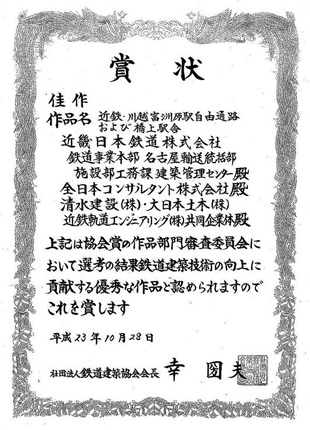 賞状
佳作
作品名 近鉄・川越富洲原駅自由通路
および橋上駅舎
近畿日本鉄道株式会社
鉄道事業本部 名古屋輸送統括部
施設部工務課建築管理センター殿
全日本コンサルタント株式会社殿
清水建設(株)・大日本土木(株)
近鉄軌道エンジニアリング(株)共同企業体殿
上記は協会賞の作品部門審査委員会に
おいて選考の結果鉄道建築技術の向上に
貢献する優秀な作品と認められますので
これを賞します
平成23年10月28日
社団法人鉄道建築協会会長 幸 圀夫